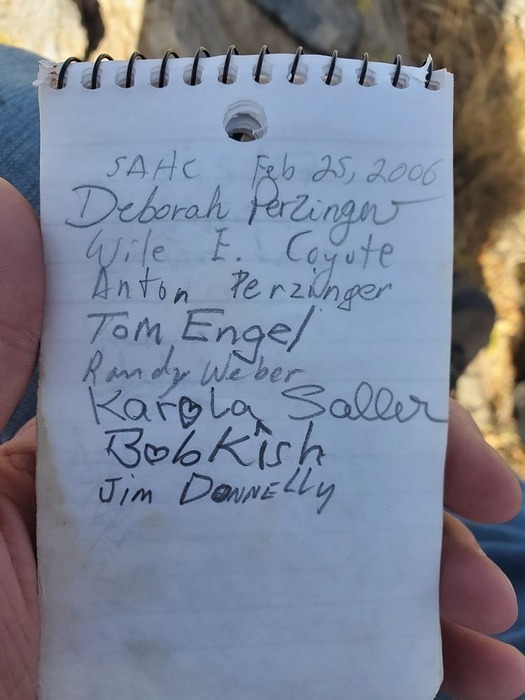 SAHC Feb 25, 2006
Deborah Perzinger
Wile E. Coyote
Anton Perzinger
Tom Engel
Randy Weber
Karola Saller
Bob Kish
Jim Donnelly